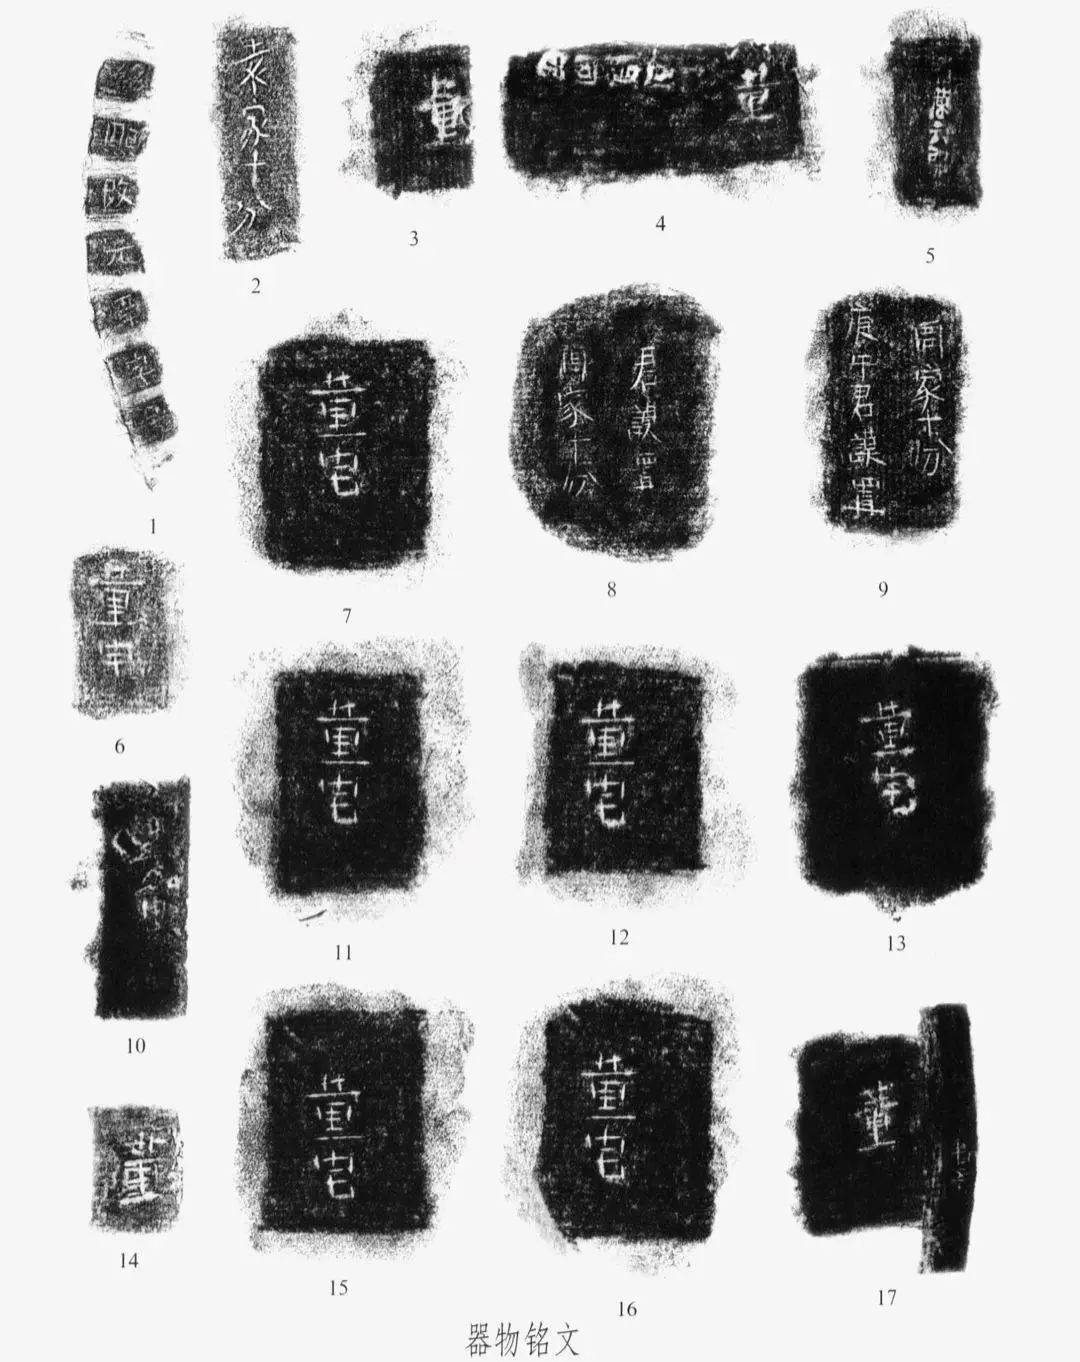 袁家十分
1
2
董
3
董
4
5
董宅
7
君謨置
閻家十分
8
周家十分
庚午君謨置
9
董宅
6
10
董宅
11
董宅
12
董宅
13
董
14
董宅
15
董宅
16
董
17
器物铭文